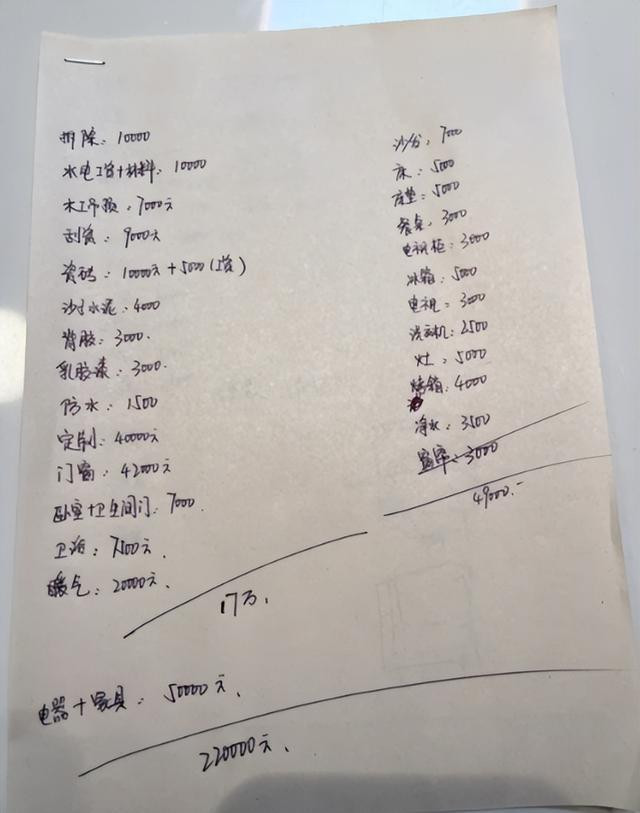 拆除：10000
水电工资+材料：10000
木工吊顶：7000元
刮瓷：9000元
瓷砖：10000元+5000(工资)
沙子水泥：4000
背胶：3000.
乳胶漆：3000.
防水：1500
定制：40000元
门窗：42000元
卧室+卫生间门：7000.
卫浴：7500元.
暖气：20000元.
17万.
沙发：7000
床：5000
床垫：5000
餐桌：3000
电视柜：3000
冰箱：5000
电视：3000
洗衣机：2500
灶：5000
烤箱：4000
净水：3500
窗帘：3000
49000.-
电器+家具：50000元.
220000元.